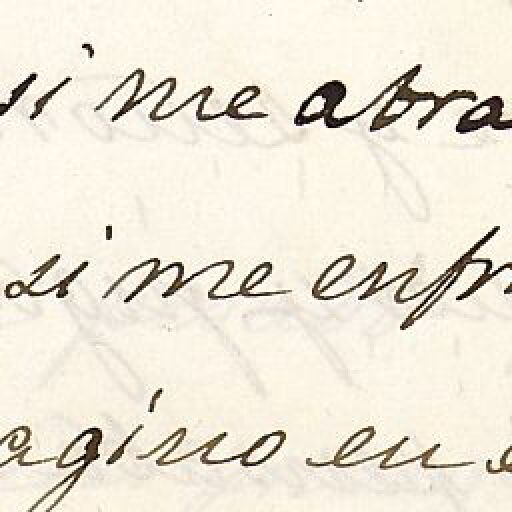 si me abra
si me enfr
agino en e